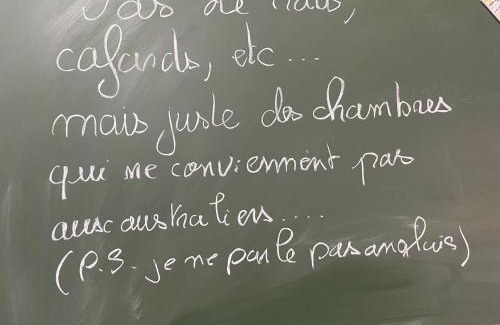 Pas de rats,
cafards, etc...
mais juste des chambres
qui ne conviennent pas
aux australiens....
(P.S. je ne parle pas anglais)